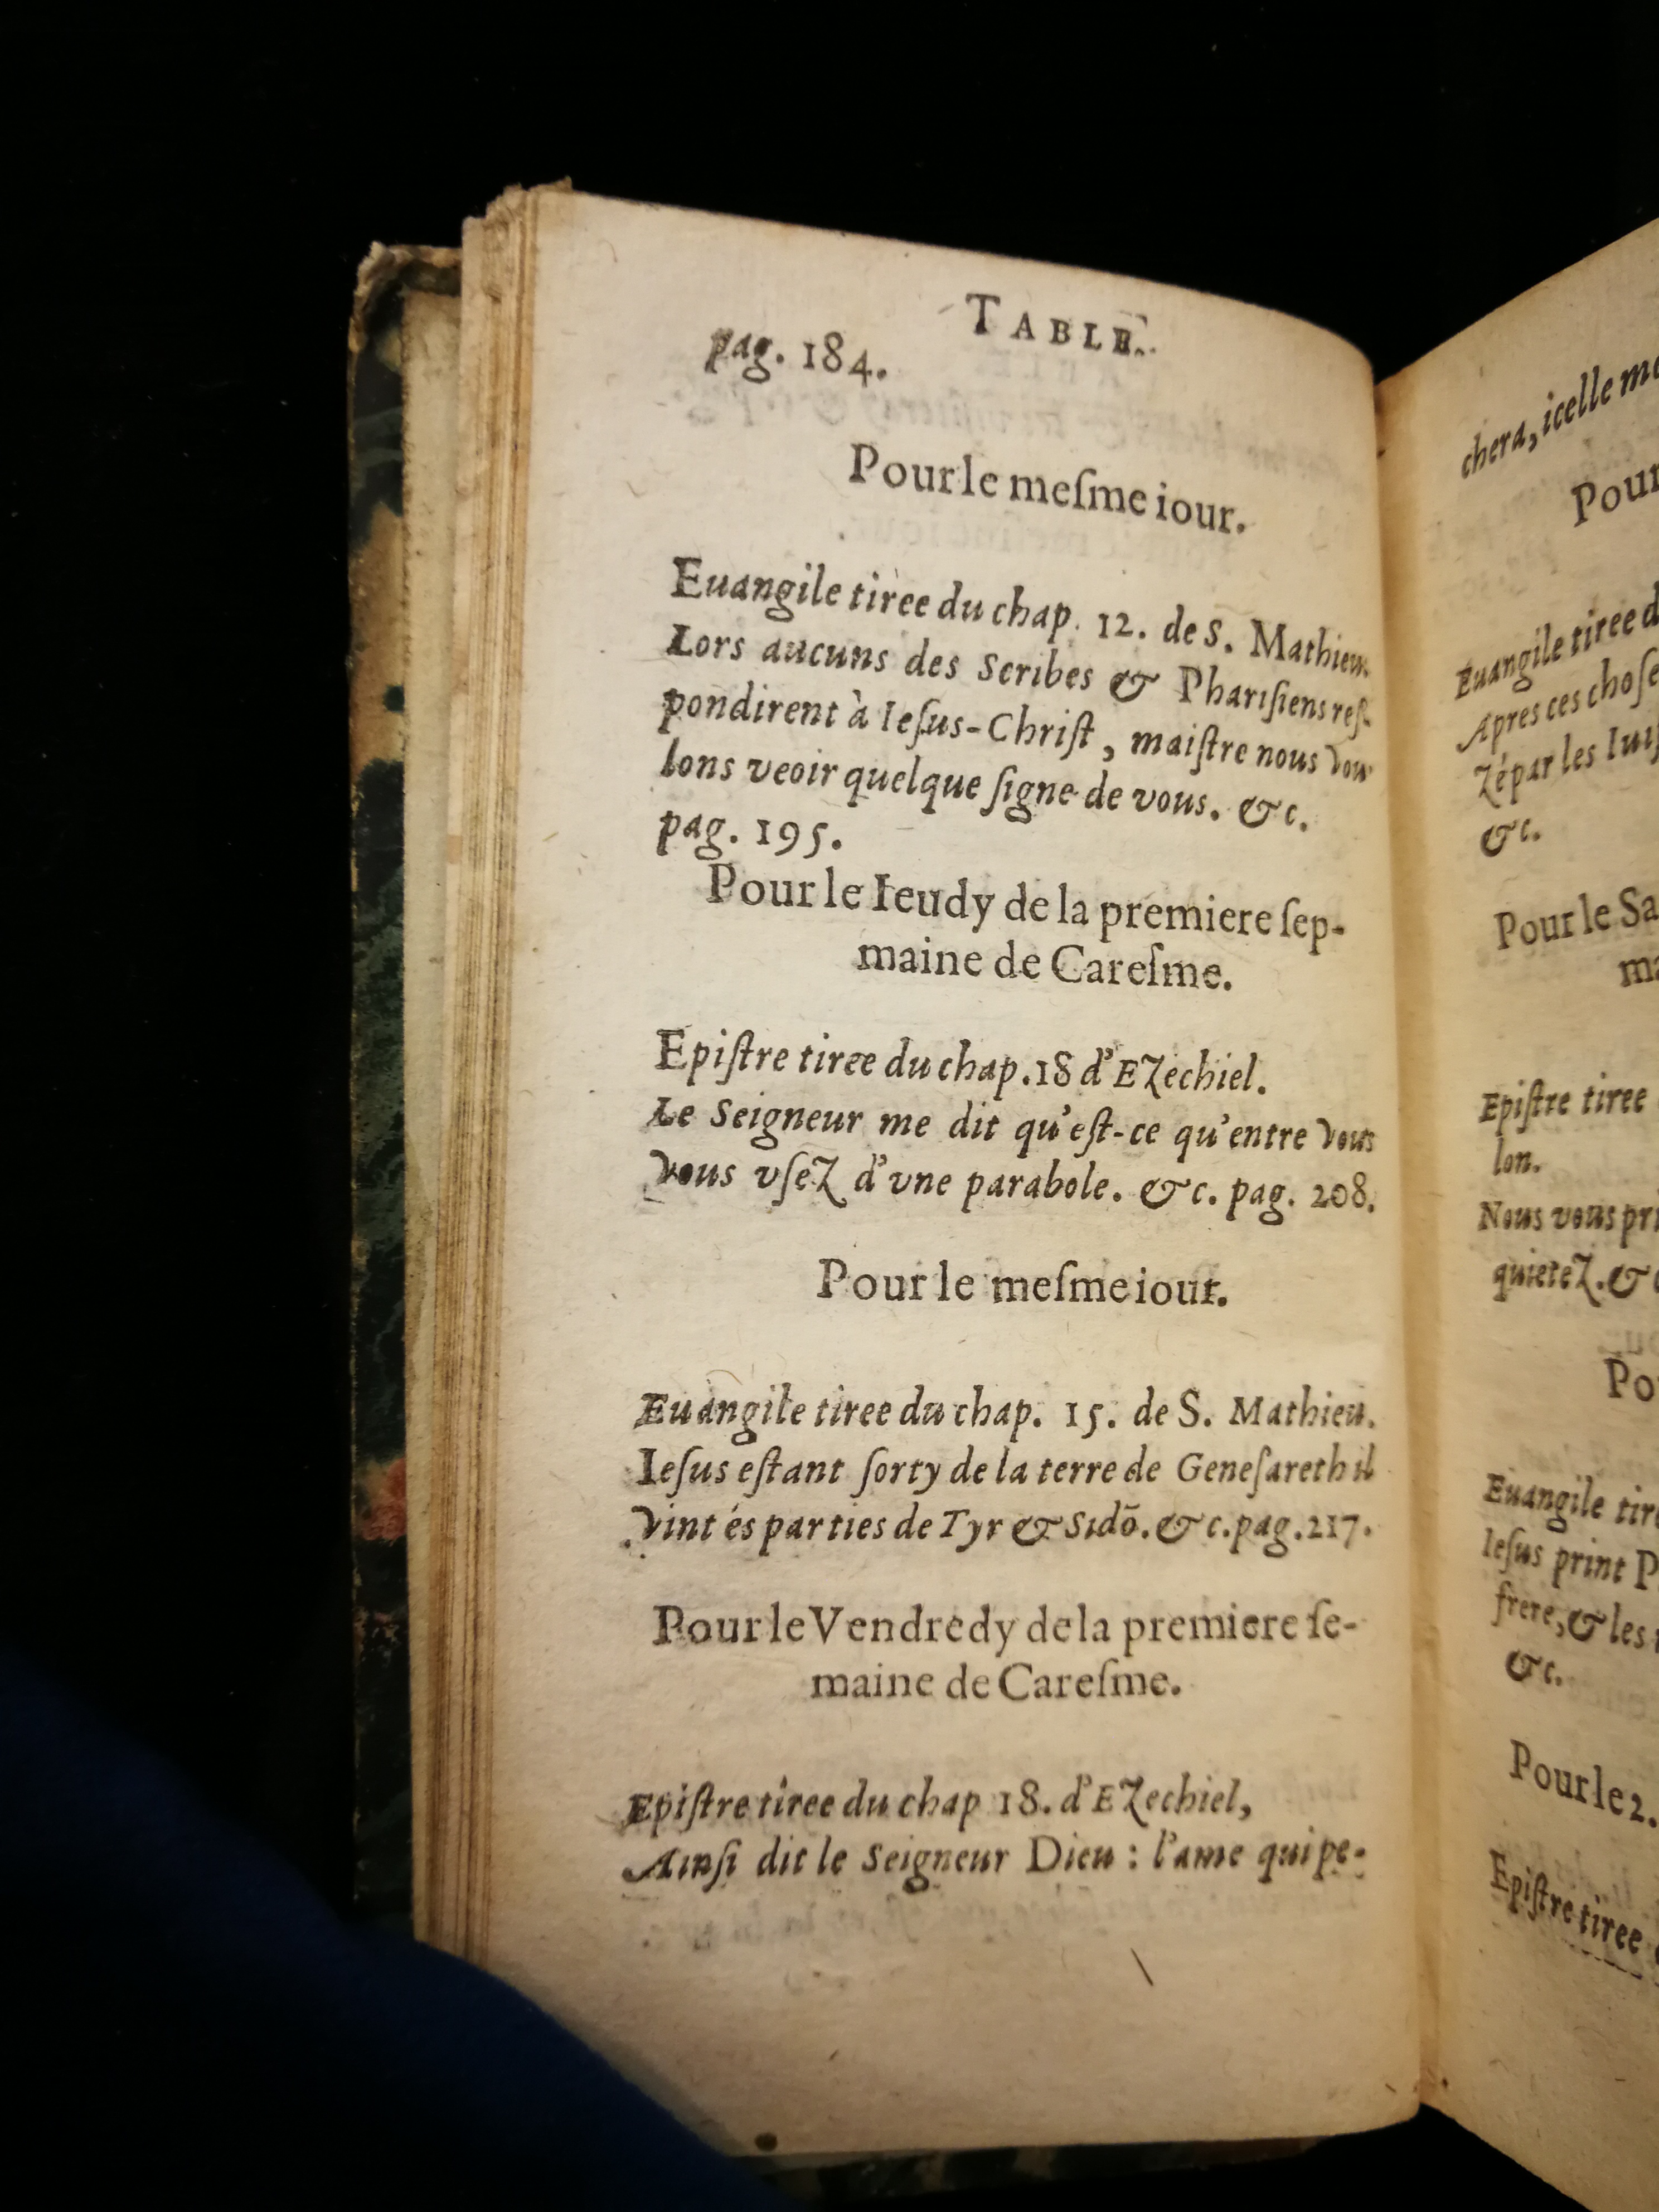 TABLE.
pag. 184.
Pour le meſme iour.
Euangile tiree du chap. 12. de S. Mathieu.
Lors aucuns des Scribes & Phariſiens reſ-
pondirent à Ieſus-Chriſt, maiſtre nous vou
lons veoir quelque ſigne de vous. &c.
pag. 195.
Pour le Ieudy de la premiere ſep-
maine de Careſme.
Epiſtre tiree du chap. 18 d'Ezechiel.
Le Seigneur me dit qu'eſt-ce qu'entre vous
vous vſez d'vne parabole. &c. pag. 208.
Pour le meſme iour.
Euangile tiree du chap. 15. de S. Mathieu.
Ieſus eſtant ſorty de la terre de Geneſareth il
vint és parties de Tyr & Sidō. &c. pag. 217.
Pour le Vendredy de la premiere ſe-
maine de Careſme.
Epiſtre tiree du chap 18. d'Ezechiel,
Ainſi dit le Seigneur Dieu : l'ame qui pe-
chera, icelle
Pour
Euangile tiree
Apres ces choſe
zé par les Iuiſ
&c.
Pour le Sa
ma
Epiſtre tiree
lon.
Nous vous pri
quietez. &
Po
Euangile tire
Ieſus print P
frere, & les
&c.
Pour le 2.
Epiſtre tiree